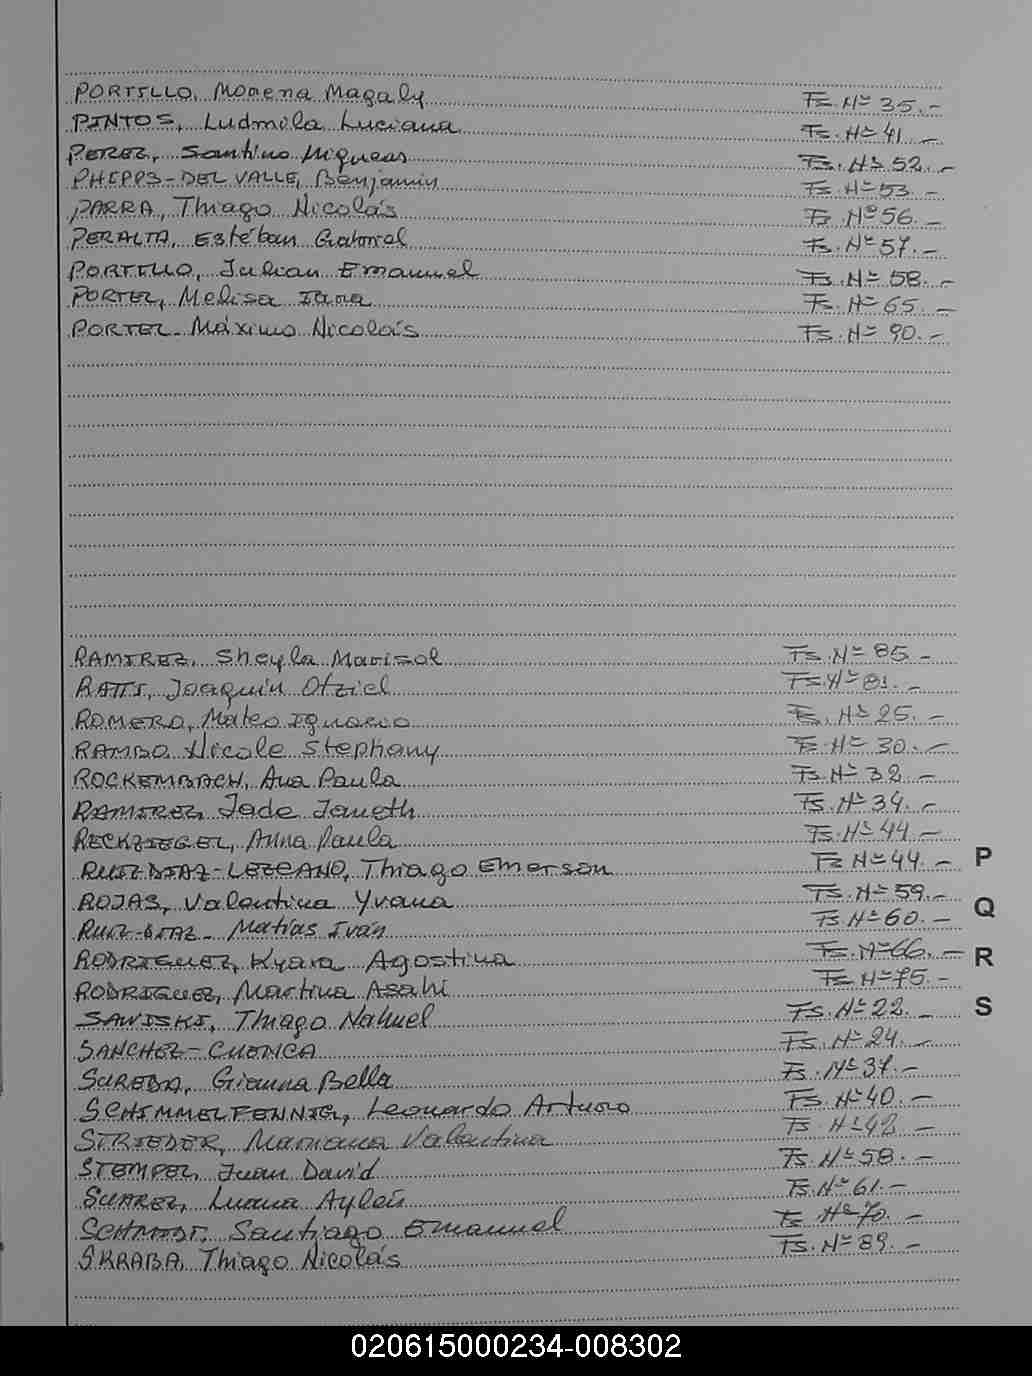 PORTILLO, Morena Magaly Fs. Nº 35.-
PINTOS, Ludmila Luciana Fs. Nº 41.-
PEREZ, Santino Miqueas Fs. Nº 52.-
PHIPPS-DEL VALLE, Benjamín Fs. Nº 53.-
PARRA, Thiago Nicolás Fs. Nº 56.-
PERALTA, Estéban Gabriel Fs. Nº 57.-
PORTILLO, Julian Emanuel Fs. Nº 58.-
PORTEL, Melisa Iara Fs. Nº 65.-
PORTEL- Máximo Nicolás Fs. Nº 90.-
RAMIREZ, Sheyla Marisol Fs. Nº 85.-
RATTI, Joaquín Otziel Fs. Nº 81.-
ROMERO, Mateo Ignacio Fs. Nº 25.-
RAMBO, Nicole Stephany Fs. Nº 30.-
ROCKEMBACH, Ana Paula Fs. Nº 32.-
RAMIREZ, Jade Janeth Fs. Nº 34.-
RECKZIEGEL, Anna Paula Fs. Nº 44.-
RUIZ DIAZ-LEZCANO, Thiago Emerson Fs Nº 44.-
P
ROJAS, Valentina Yvana Fs. Nº 59.-
Q
RUIZ-DIAZ- Matías Iván Fs Nº 60.-
RODRIGUEZ, Kyara Agostina Fs. Nº 66.-
R
RODRIGUEZ, Martina Asahi Fs. Nº 75.-
SAWISKI, Thiago Nahuel Fs. Nº 22.-
S
SANCHEZ-CUENCA Fs. Nº 24.-
SUREDA, Gianna Bella Fs. Nº 37.-
SCHIMMELFENNIG, Leonardo Arturo Fs. Nº 40.-
STRIEDER, Mariana Valentina Fs Nº 42.-
STEMPEL, Juan David Fs. Nº 58.-
SUAREZ, Luana Aylén Fs. Nº 61.-
SCHMIDT, Santiago Emanuel Fs Nº 70.-
SKRABA, Thiago Nicolás Fs. Nº 89.-
020615000234-008302